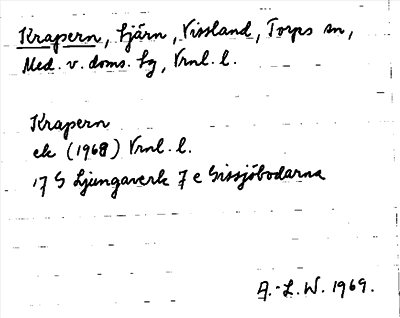 Krapern, tjärn, Vissland, Torps sn,
Med. v. doms. tg, Vrnl. l.
Krapern
ek (1968) Vrnl. l.
17 G Ljungaverk 7 e Gissjöbodarna
A.-L.W. 1969.